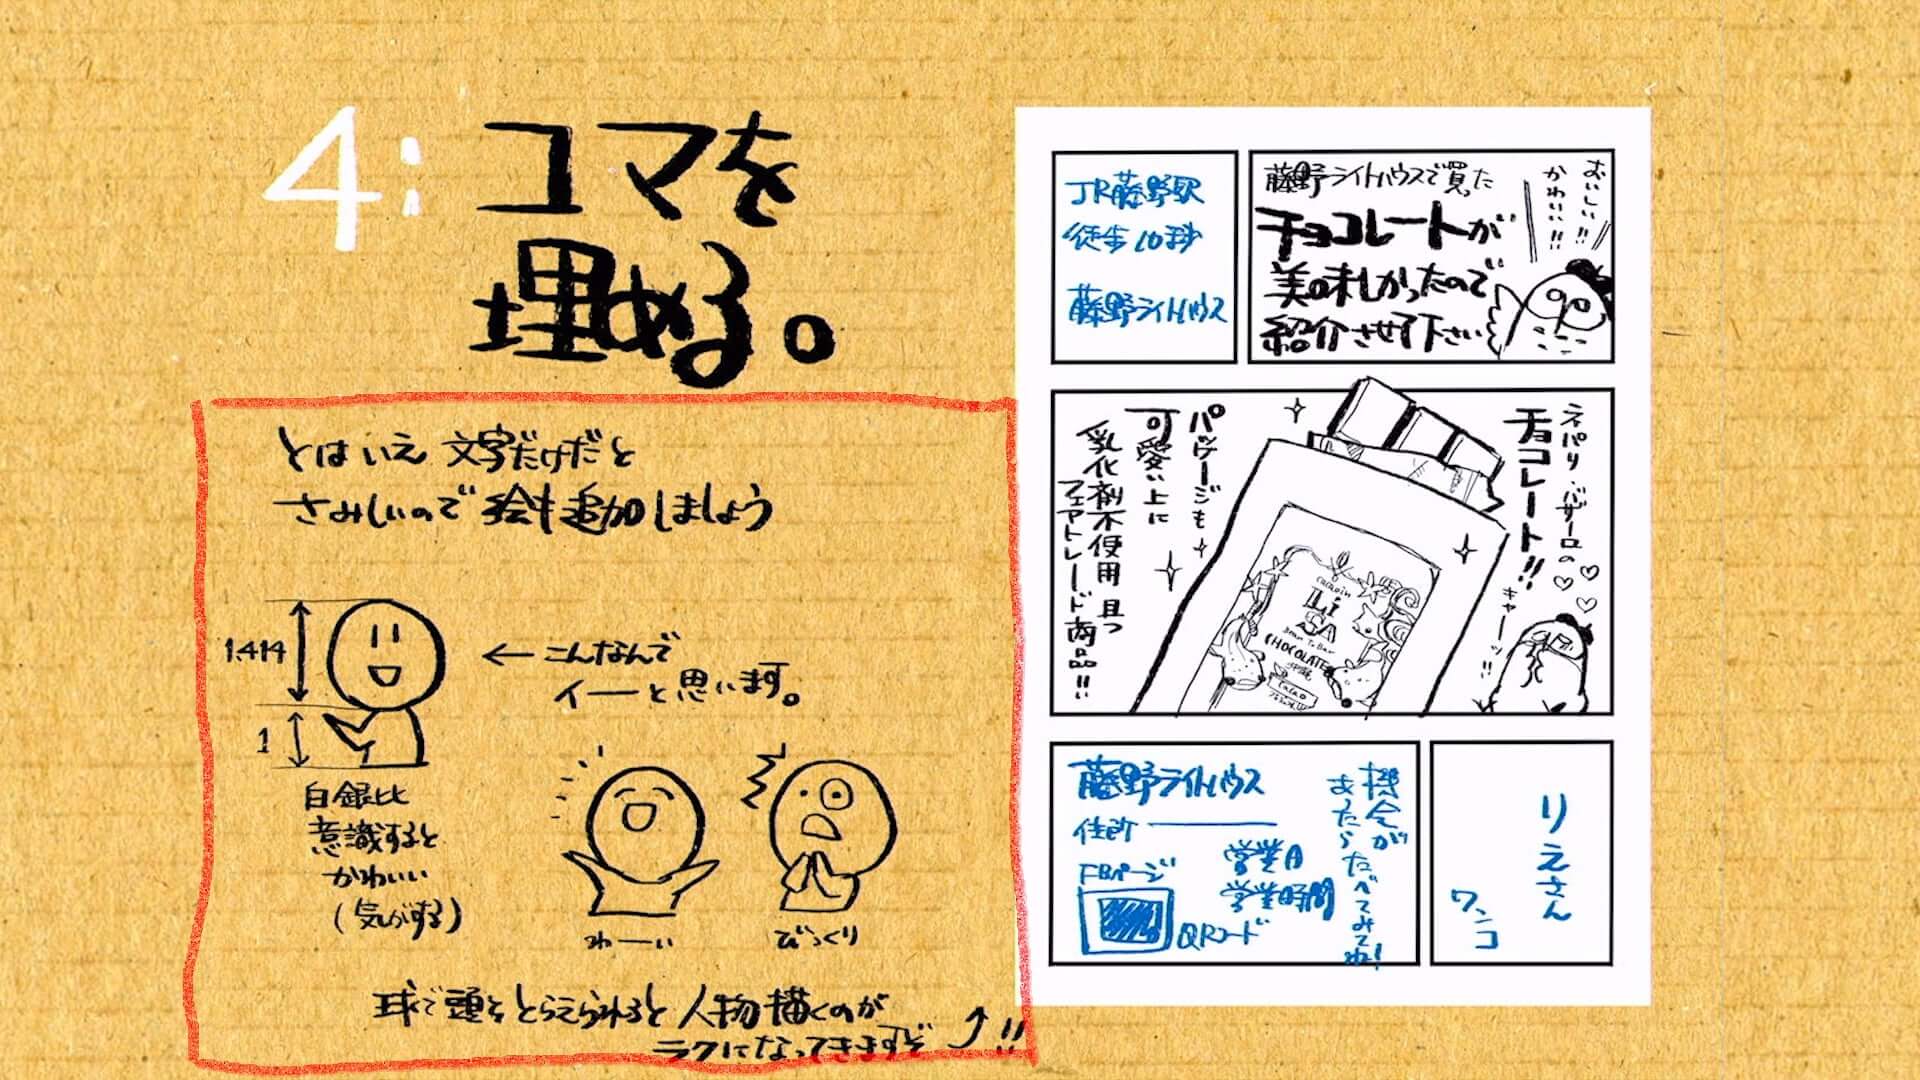 4: コマを
埋める。
とはいえ 文字だけだと
さみしいので 絵も追加しましょう
1.414
1
← こんなんで
イーと思います。
白銀比
意識すると
かわいい
(気がする)
わーい
びっくり
球で頭をとらえられると人物描くのが
ラクになってきますぞ
!!
JR藤野駅
徒歩10秒
藤野ライトハウス
藤野ライトハウスで買った
チョコレートが
美味しかったので
紹介させて下さい
おいしい!!
かわいい!!
ネパリ・バザーロの
チョコレート!!
キャーッ!!
パッケージも
可愛い上に
乳化剤不使用 且つ
フェアトレード商品!!
Li
SA
CHOCOLATE
cacao
藤野ライトハウス
住所
FBページ
QRコード
営業日
営業時間
機会が
あったら
たべてみてね!
りえさん
ワンコ